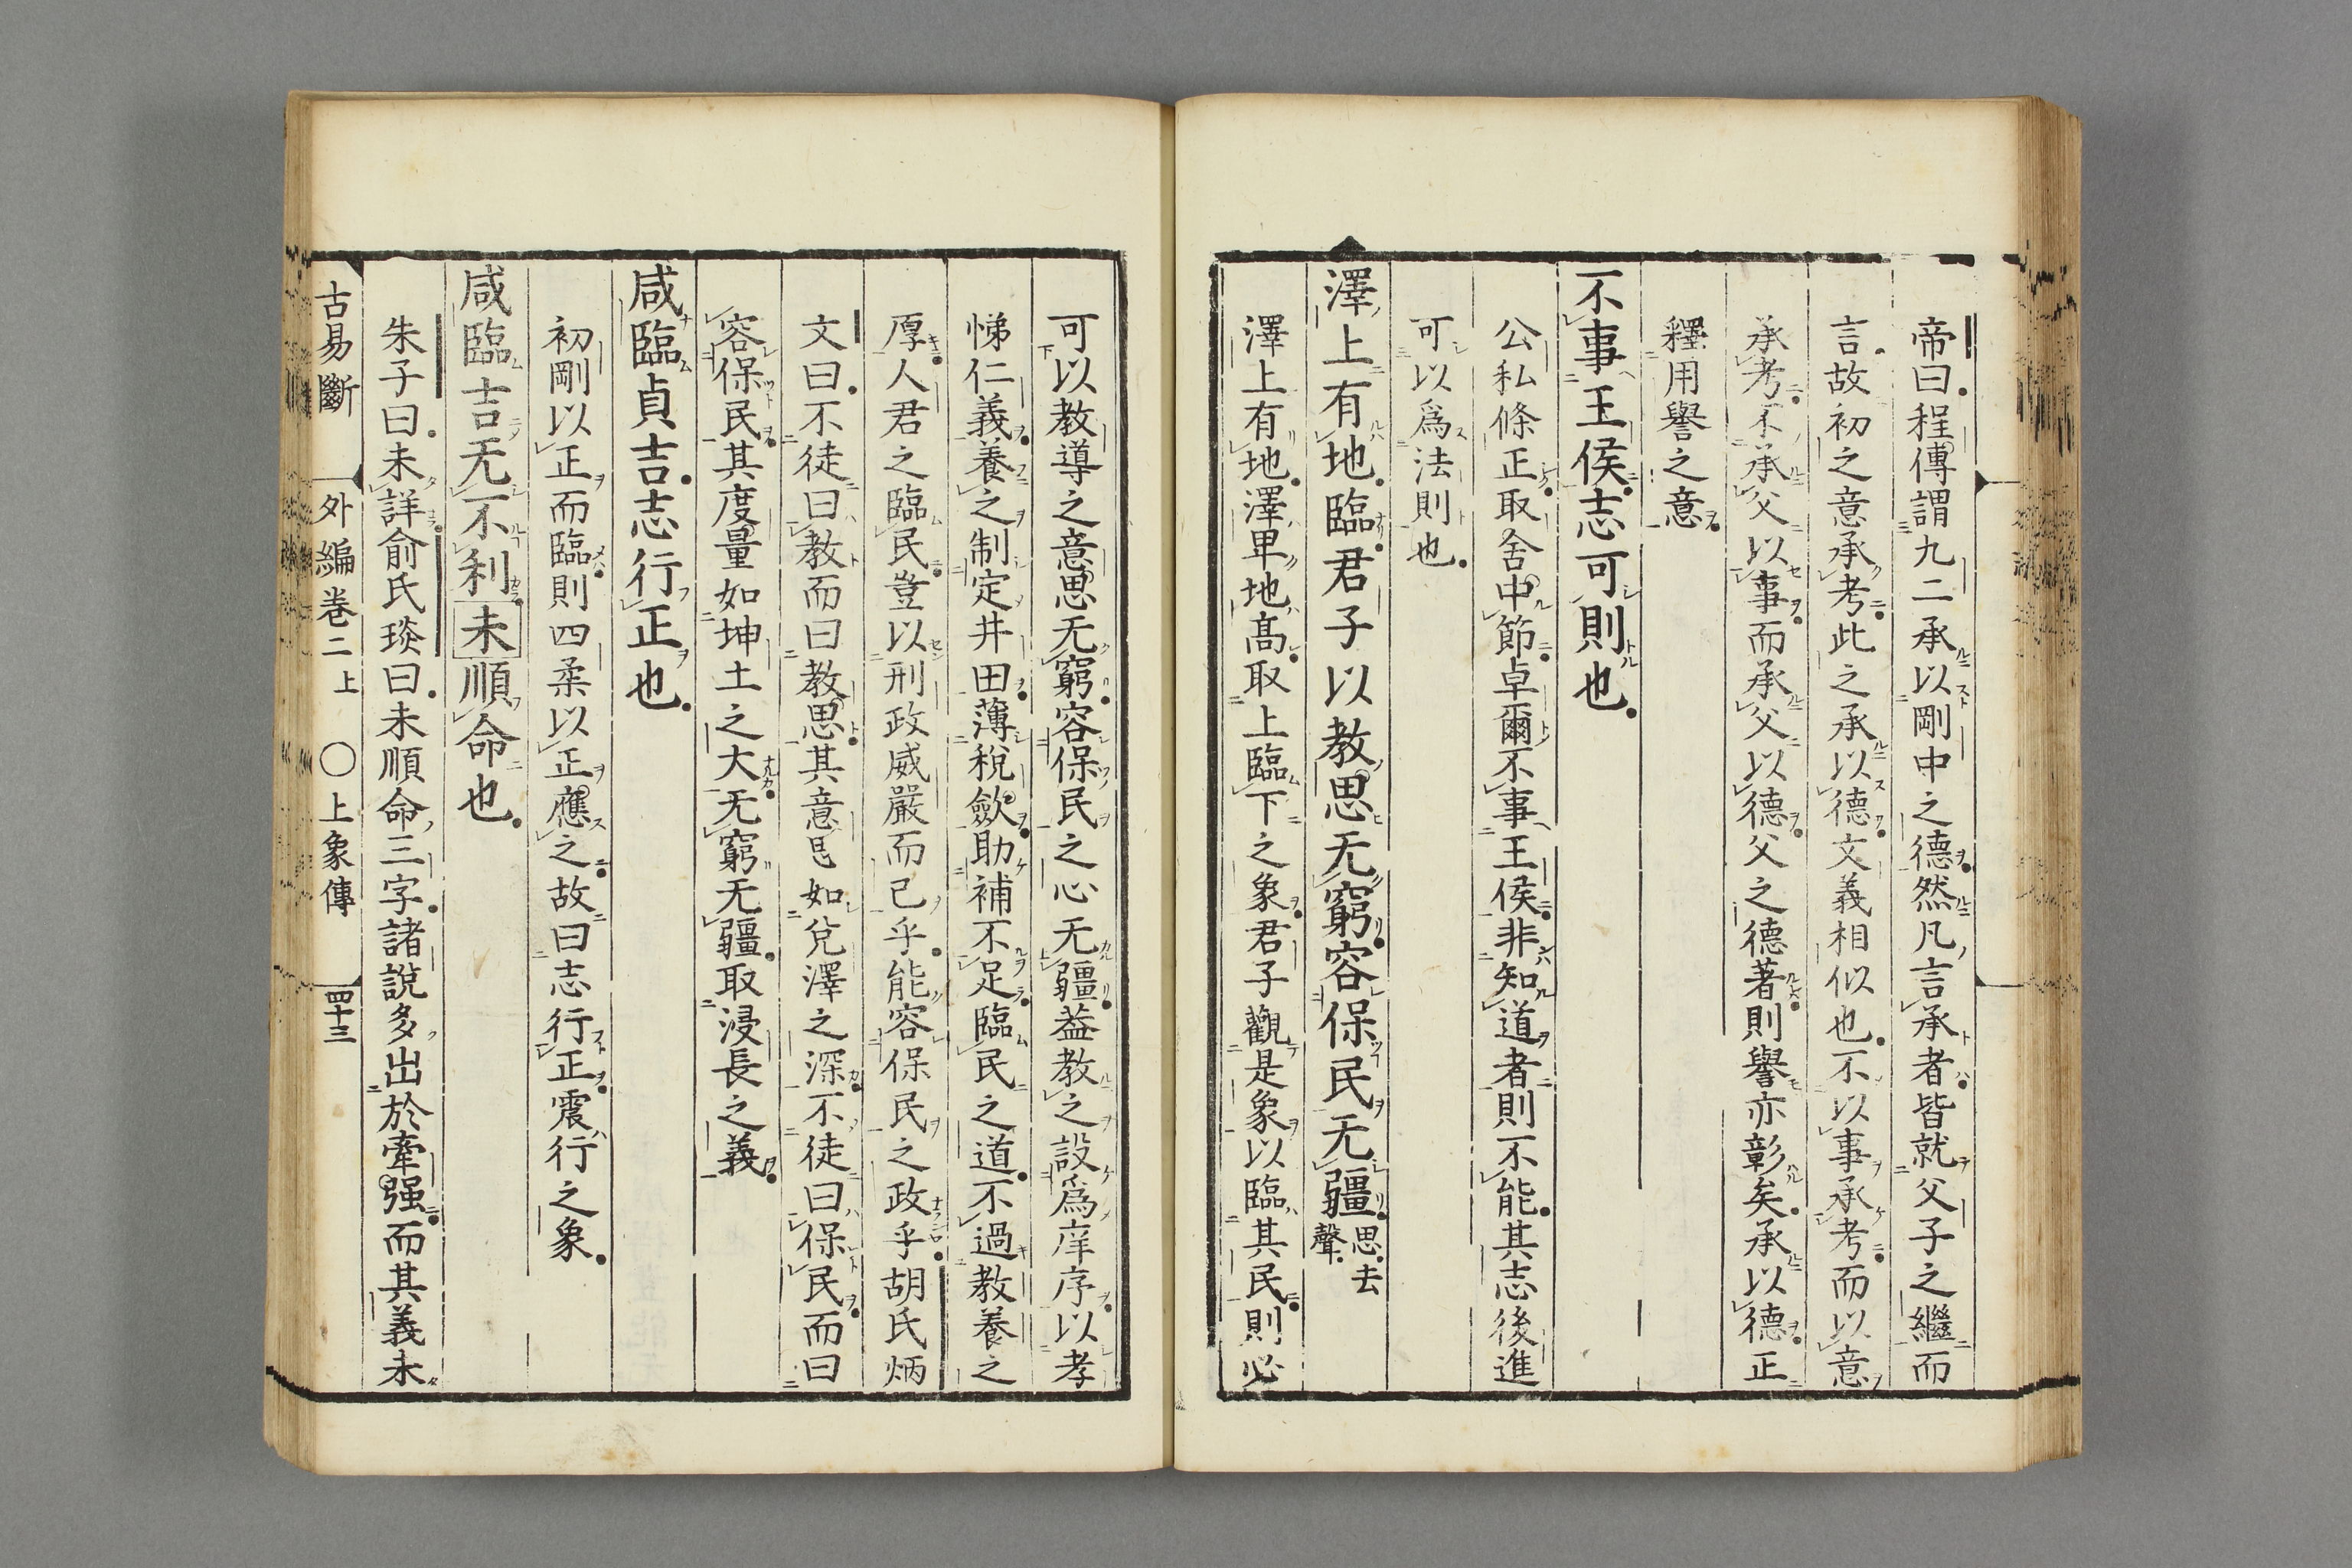 帝曰程傳謂九二承以剛中之德然凡言承者皆就父子之繼而
言故初之意承考此之承以德文義相似也不以事承考而以意
承考不承父以事而承父以德父之德著則譽亦彰矣承以德正
釋用譽之意
不事王侯志可則也
公私條正取舍中節卓爾不事王侯非知道者則不能其志後進
可以爲法則也
澤上有地臨君子以教思无窮容保民无疆思去聲
澤上有地澤卑地高取上臨下之象君子觀是象以臨其民則必
可以教導之意思无窮容保民之心无疆葢教之設爲庠序以孝
悌仁義養之制定井田薄稅斂助補不足臨民之道不過教養之
厚人君之臨民豈以刑政威嚴而已乎能容保民之政乎胡氏炳
文曰不徒曰教而曰教思其意思如兌澤之深不徒曰保民而曰
容保民其度量如坤土之大无窮无疆取浸長之義
咸臨貞吉志行正也
初剛以正而臨則四柔以正應之故曰志行正震行之象
咸臨吉无不利未順命也
朱子曰未詳俞氏琰曰未順命三字諸說多出於牽强而其義未
古易斷 外編卷二上 〇上象傳 四十三